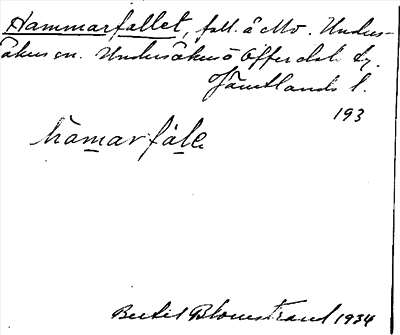 Hammarfallet, fall. å Mo. Undersåkers sn. Undersåkers o Offerdals tg.
Jämtlands l.
193
hamarfale
Bertil Blomstrand 1934